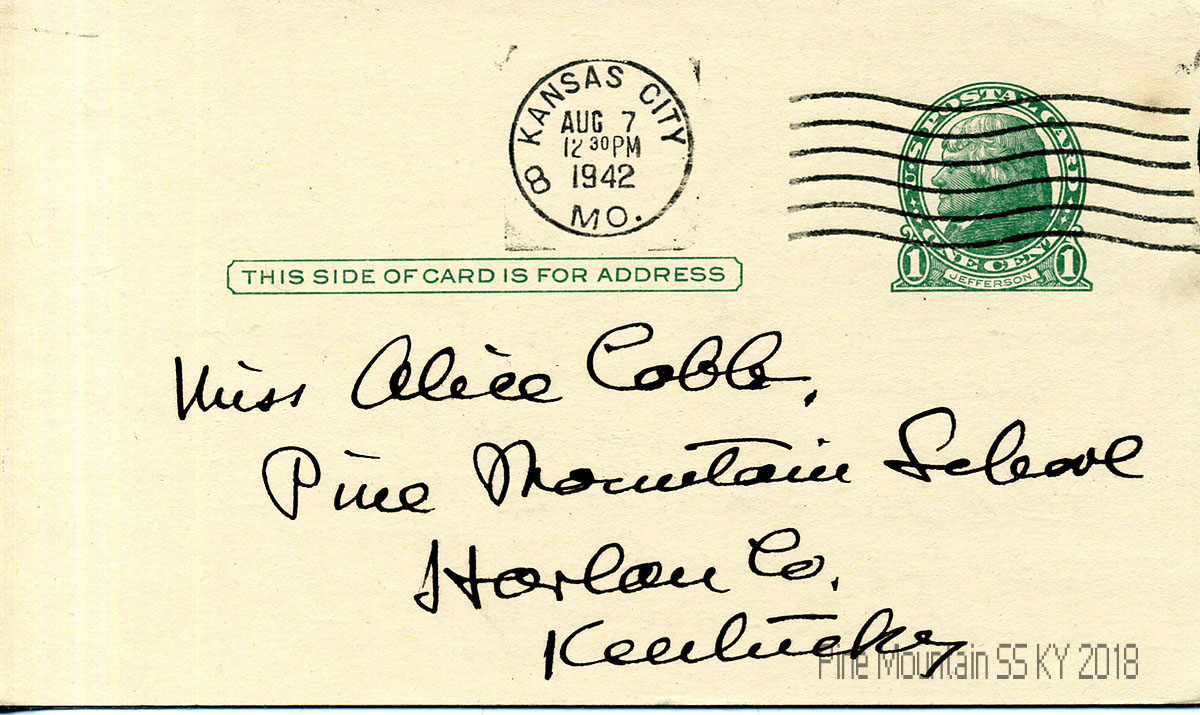 KANSAS CITY
AUG 7
12 30 PM
1942
8
MO.
U.S. POSTAL CARD
ONE CENT
1 JEFFERSON 1
THIS SIDE OF CARD IS FOR ADDRESS
Miss Alice Cobb,
Pine Mountain School
Harlan Co,
Kentucky
Pine Mountain SS KY 2018